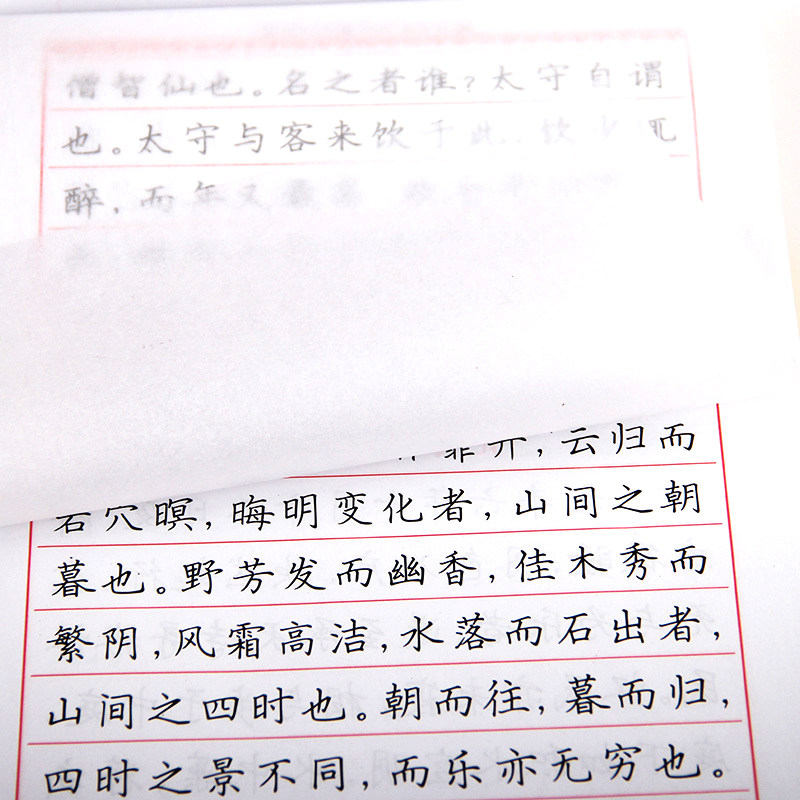 僧智仙也。名之者谁？太守自谓
也。太守与客来饮于此，饮少
醉，而年又最高
霏开，云归而
岩穴暝，晦明变化者，山间之朝
暮也。野芳发而幽香，佳木秀而
繁阴，风霜高洁，水落而石出者，
山间之四时也。朝而往，暮而归，
四时之景不同，而乐亦无穷也。